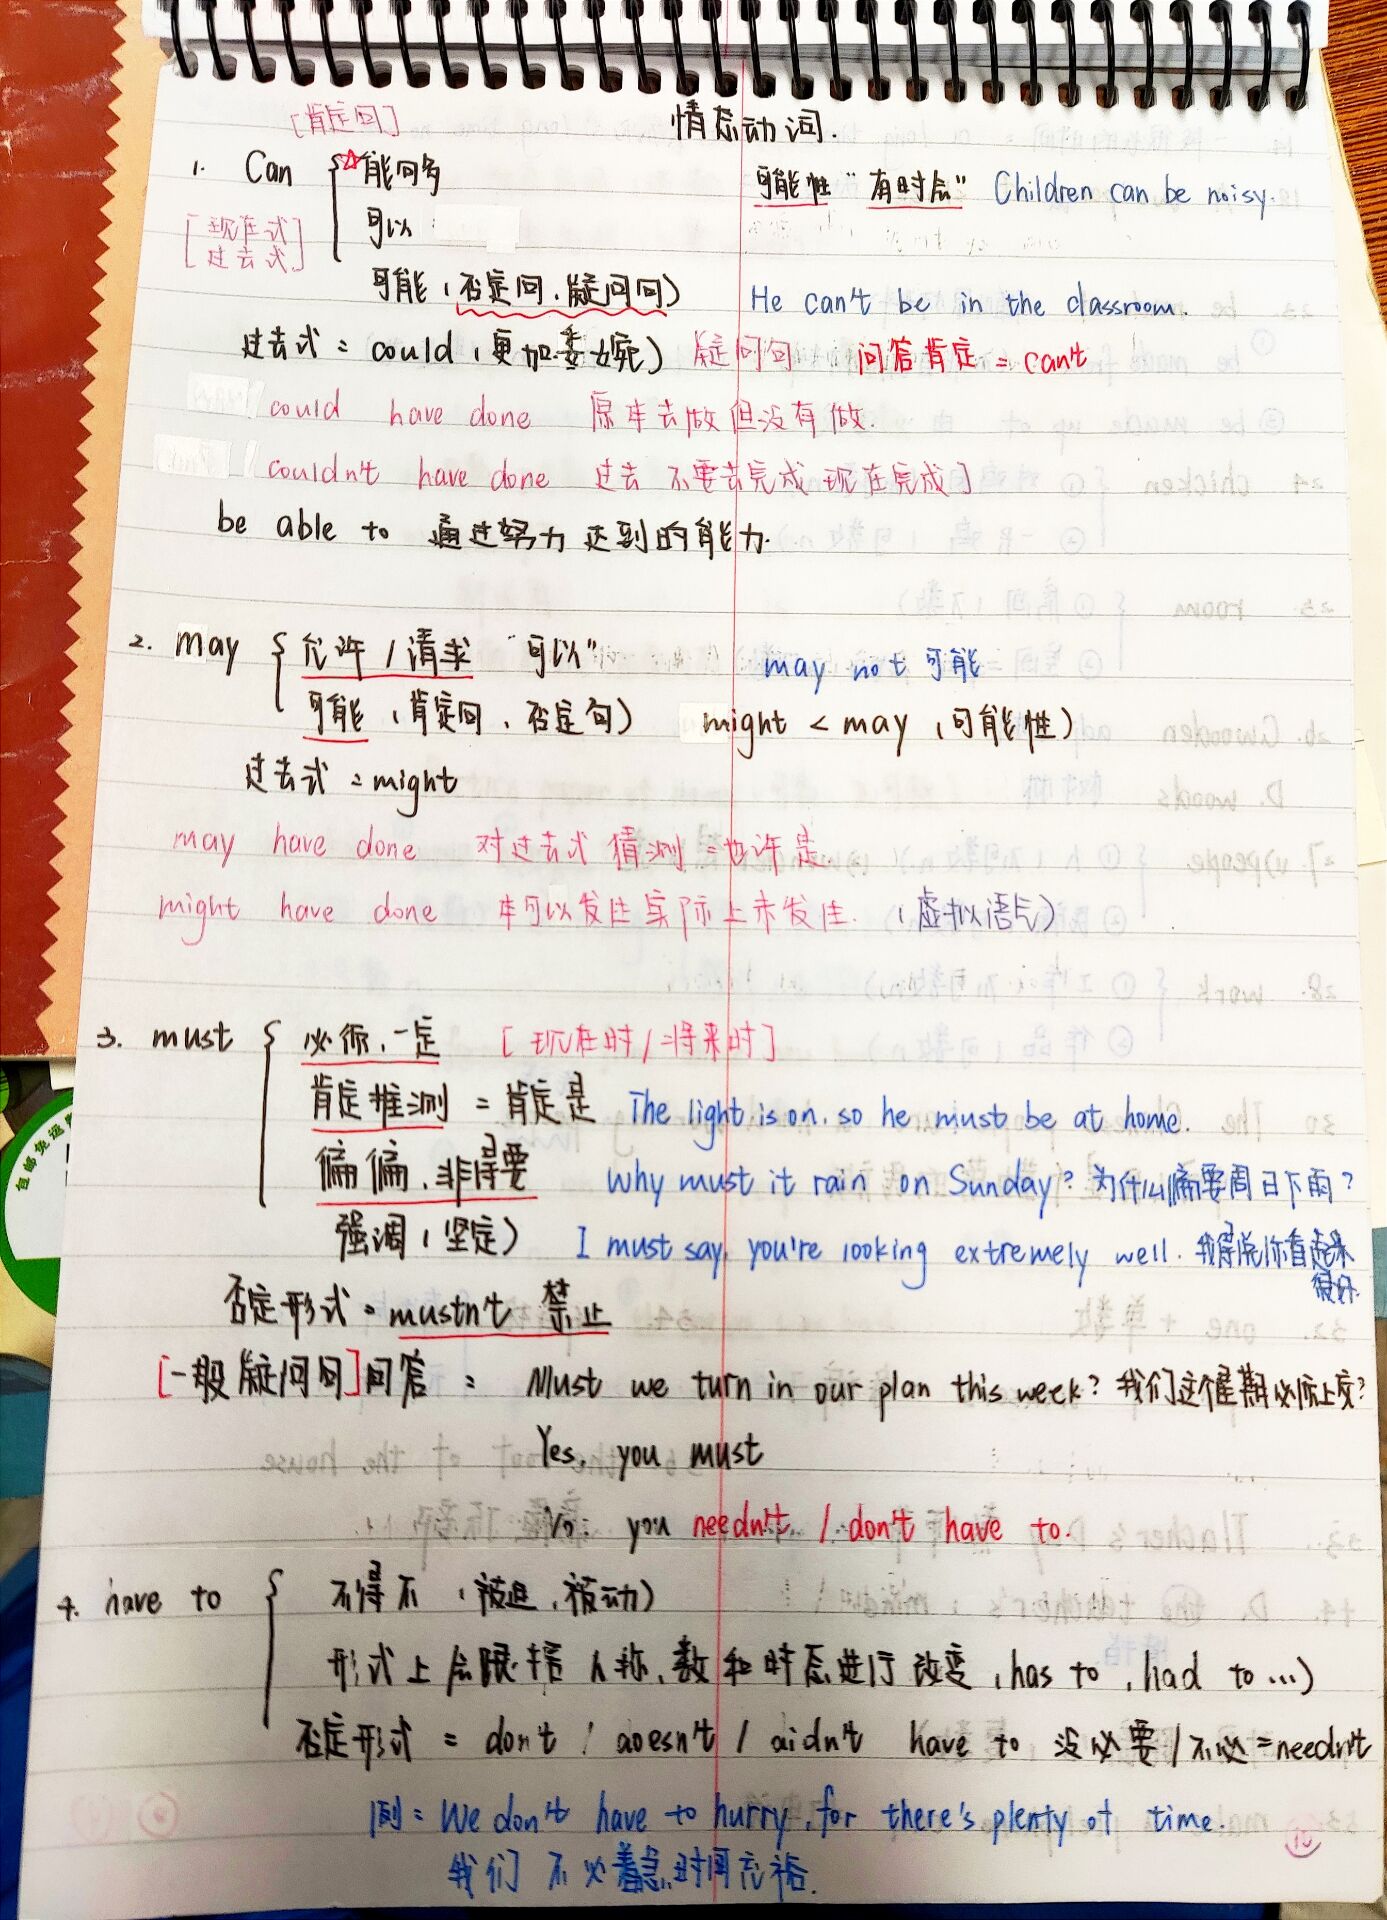 [肯定句] 情态动词.
1. Can ☆能够
可能性 "有时会" Children can be noisy.
[现在式
过去式]
可以
可能 (否定句、疑问句) He can't be in the classroom.
过去式: could (更加委婉) 疑问句 回答肯定: can't
could have done 原本去做但没有做.
couldn't have done 过去 不要去完成 现在完成]
be able to 通过努力 达到的能力.
2. may 允许 / 请求 "可以" may not 可能
可能 (肯定句、否定句) might < may (可能性)
过去式: might
may have done 对过去式 猜测: 也许是
might have done 本可以发生实际上未发生. (虚拟语气)
3. must 必须、一定 [现在时/将来时]
肯定推测: 肯定是 The light is on. so he must be at home.
偏偏、非得要 Why must it rain on Sunday? 为什么偏要周日下雨?
强调 (坚定) I must say, you're looking extremely well. 我得说你看起来
很好.
否定形式: mustn't 禁止
[一般疑问句]回答: Must we turn in our plan this week? 我们这个星期必须上交?
Yes, you must
No: you needn't / don't have to.
4. have to 不得不 (被迫、被动)
形式上会跟据人称、数和时态进行改变 (has to, had to ...)
否定形式: don't / doesn't / didn't have to 没必要/不必: needn't
例: We don't have to hurry, for there's plenty of time.
我们不必着急,时间充裕.